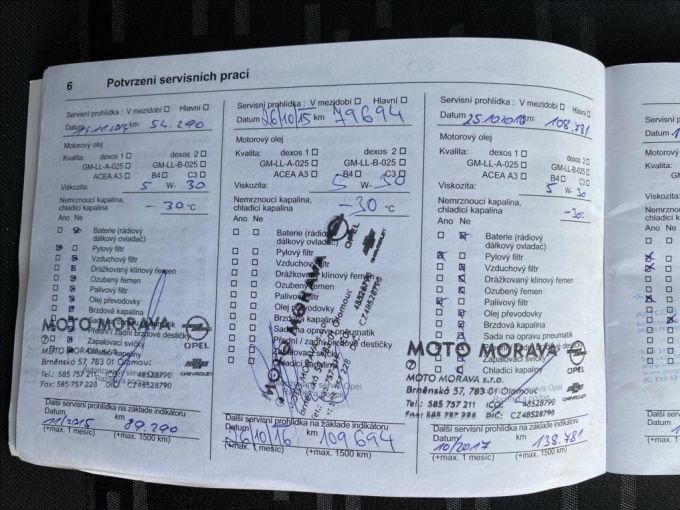 6 Potvrzení servisních prací
Servisní prohlídka : V mezidobí Hlavní
Datum km 54.290
Motorový olej
Kvalita: dexos 1 dexos 2
GM-LL-A-025 GM-LL-B-025
ACEA A3 B4 C3
Viskozita: 5 W- 30
Nemrznoucí kapalina,
chladicí kapalina -30 °C
Ano Ne
Baterie (rádiový
dálkový ovladač)
Pylový filtr
Vzduchový filtr
Drážkovaný klínový řemen
Ozubený řemen
Palivový filtr
Olej převodovky
Brzdová kapalina
MOTO MORAVA OPEL
MOTO MORAVA s.r.o.
Brněnská 57, 783 01 Olomouc
Tel.: 585 757 211
Fax: 585 757 220 CZ48528790
CHEVROLET
Další servisní prohlídka na základe indikátoru
Datum 11/2015 km 89.290
(+max. 1 mesíc) (+max. 1500 km)
Servisní prohlídka : V mezidobí Hlavní
Datum 26/10/15 km 79694
Motorový olej
Kvalita: dexos 1 dexos 2
GM-LL-A-025 GM-LL-B-025
ACEA A3 B4 C3
Viskozita: 5 W- 30
Nemrznoucí kapalina,
chladicí kapalina -30 °C
Ano Ne
Baterie (rádiový
dálkový ovladač)
Pylový filtr
Vzduchový filtr
Drážkovaný klínový řemen
Ozubený řemen
Palivový filtr
Olej převodovky
Brzdová kapalina
Sada na opravu pneumatik
Přední / zadní
Zapalovací svíčky
Chladicí kapaliny
MOTO MORAVA OPEL
CHEVROLET
Olomouc
48528790
CZ48528790
Další servisní prohlídka na základe indikátoru
Datum 26/10/16 km 109694
(+max. 1 mesíc) (+max. 1500 km)
Servisní prohlídka : V mezidobí Hlavní
Datum 25.10.2016 km 108.781
Motorový olej
Kvalita: dexos 1 dexos 2
GM-LL-A-025 GM-LL-B-025
ACEA A3 B4 C3
Viskozita: 5 W- 30
Nemrznoucí kapalina,
chladicí kapalina -30 °C
Ano Ne
Baterie (rádiový
dálkový ovladač)
Pylový filtr
Vzduchový filtr
Drážkovaný klínový řemen
Ozubený řemen
Palivový filtr
Olej převodovky
Brzdová kapalina
Sada na opravu pneumatik
Zapalovací svíčky
MOTO MORAVA OPEL
MOTO MORAVA s.r.o.
Brněnská 57, 783 01 Olomouc
Tel.: 585 757 211 IČ: 48528790
Fax: 585 757 220 DIČ: CZ48528790
CHEVROLET
Další servisní prohlídka na základe indikátoru
Datum 10/2017 km 138.781
(+max. 1 mesíc) (+max. 1500 km)